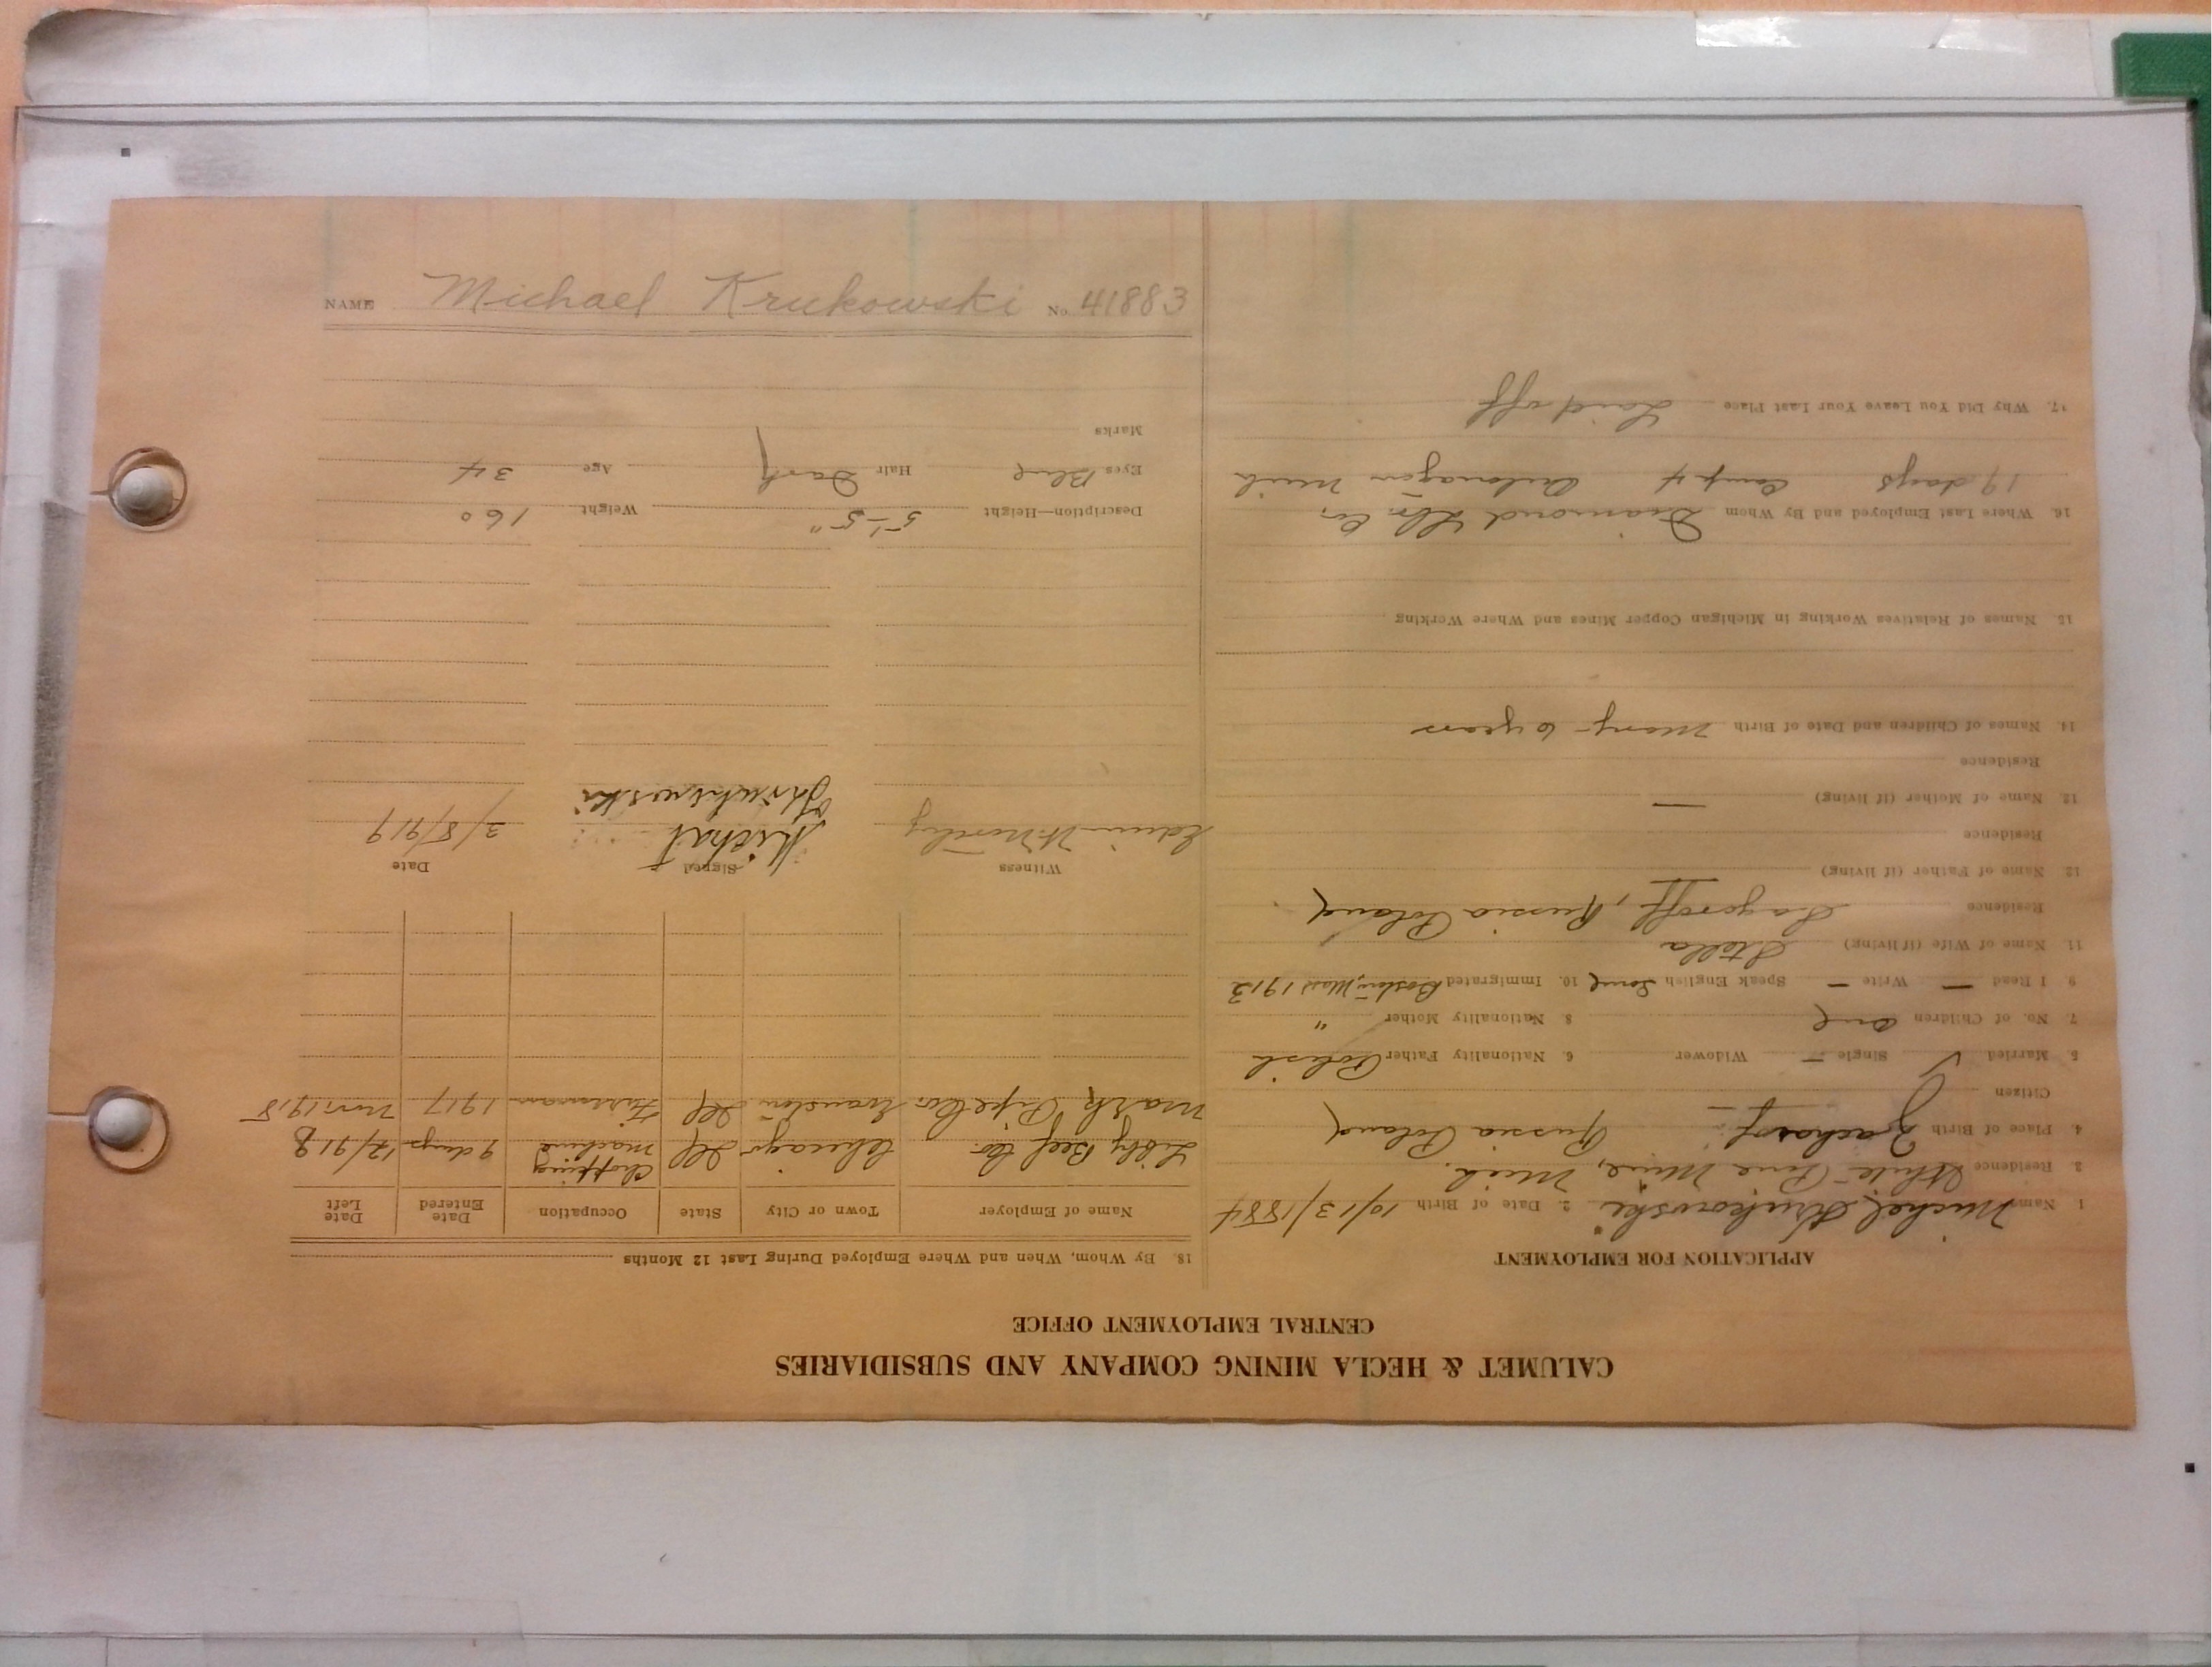 CALUMET & HECLA MINING COMPANY AND SUBSIDIARIES
CENTRAL EMPLOYMENT OFFICE
APPLICATION FOR EMPLOYMENT
1 Name Michel Krukowski 2. Date of Birth 10/13/1884
3 Residence White Pine Mine, Mich.
4. Place of Birth Russia Poland
Citizen
5. Married ✓ Single — Widower 6. Nationality Father Polish
7. No. of Children one 8. Nationality Mother "
9. I Read — Write — Speak English some 10. Immigrated Boston, Mass 1913
11. Name of Wife (if living) Stella
Residence Russia Poland
12. Name of Father (if living)
Residence
12. Name of Mother (if living) —
Residence
14. Names of Children and Date of Birth Mary - 6 years
15. Names of Relatives Working in Michigan Copper Mines and Where Working
16. Where Last Employed and By Whom Diamond Lbr. Co.
19 days Camp 4 Ontonagon Mich
17. Why Did You Leave Your Last Place Laid off
18. By Whom, When and Where Employed During Last 12 Months
Name of Employer Town or City State Occupation Date Entered Date Left
Libby Beef Co. Chicago Ill Chopping machine 9 days 12/918
Mark Pipe Co. Evanston Ill Fireman 1917 Nov. 1918
Witness Signed Date
Edwin Michał 3/8/919
Description—Height 5'-5" Weight 160
Eyes Blue Hair Dark Age 34
Marks
NAME Michael Krukowski No. 41883